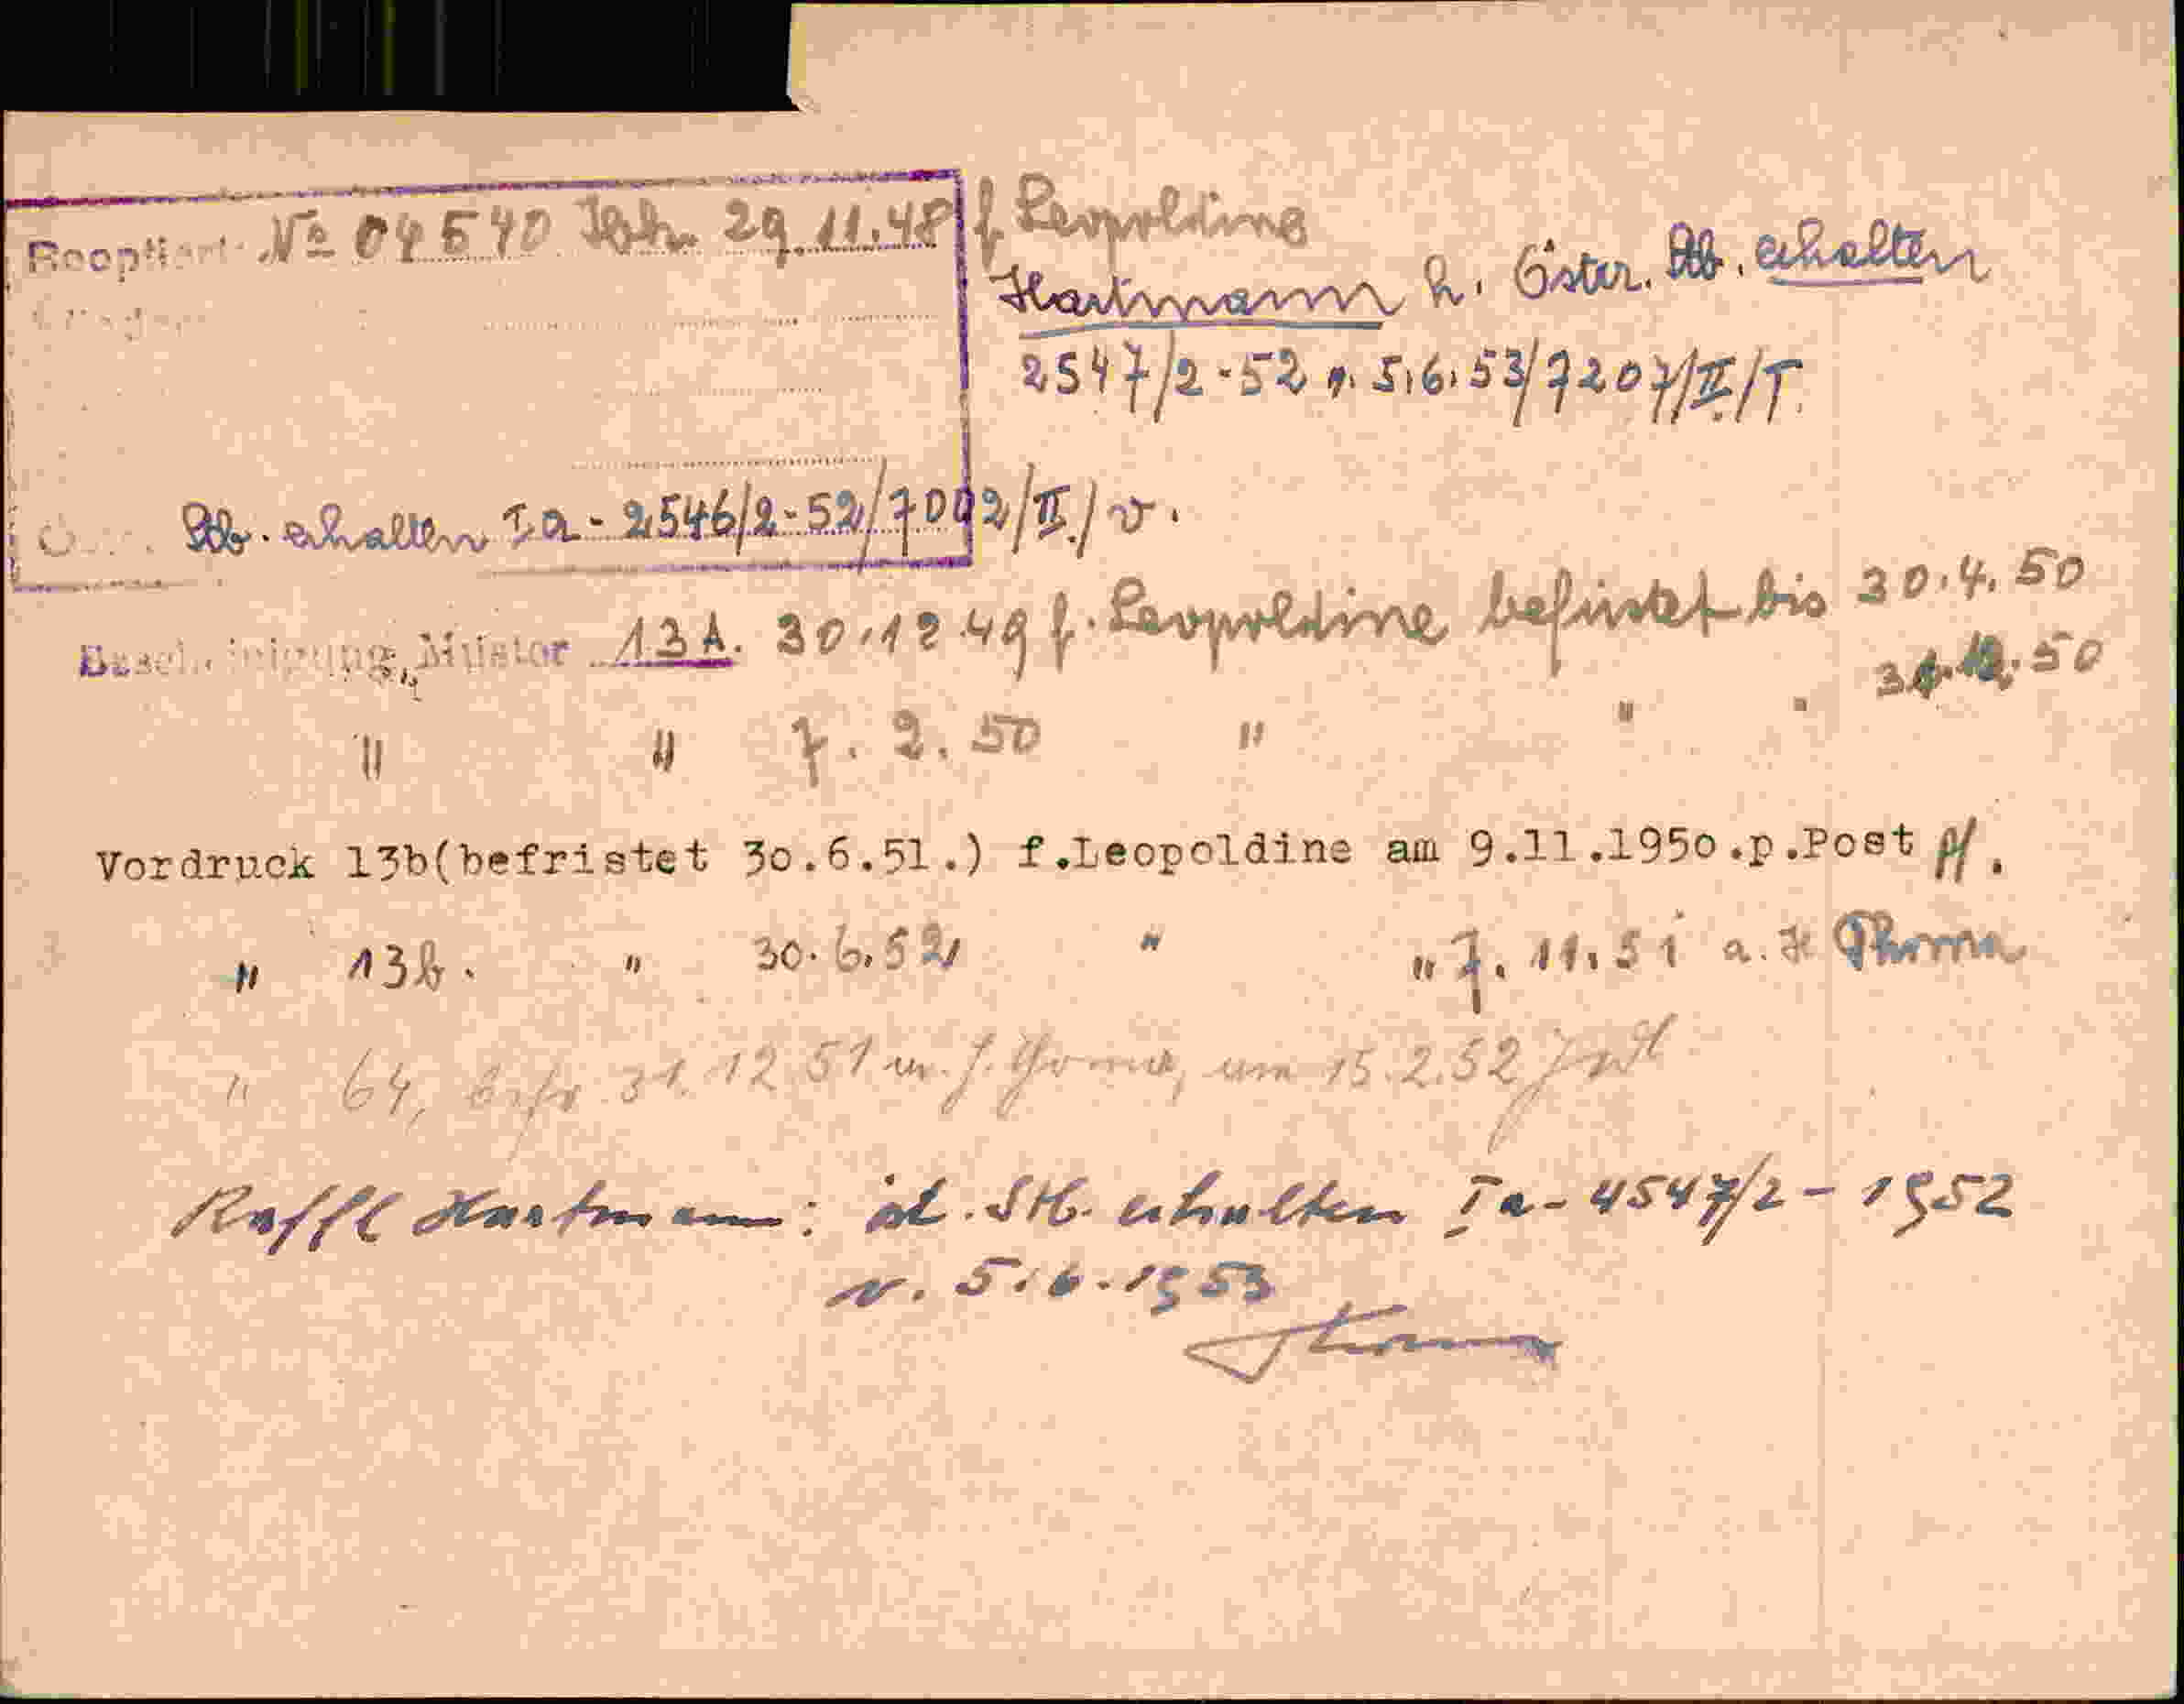 Reoptiert: № 04540 29.11.48 f. Leopoldine
Hartmann h. Öster. Stb. erhalten
2547/2-52 v. 5.6.53/7207/II/T.
Stb. erhalten Ia-2546/2-52/7002/II/v.
Bescheinigung, Muster 13A. 30.12.49 f. Leopoldine befristet bis 30.4.50
" " 7.2.50 " " " .50
Vordruck 13b(befristet 30.6.51.) f.Leopoldine am 9.11.1950.p.Post
" 13b. " 30.6.52 " " 7.11.51 a.
" 64, 31.12.51 15.2.52
Raffl Hartmann: öst. Stb. erhalten Ia-4547/2-1952
v. 5.6.1953